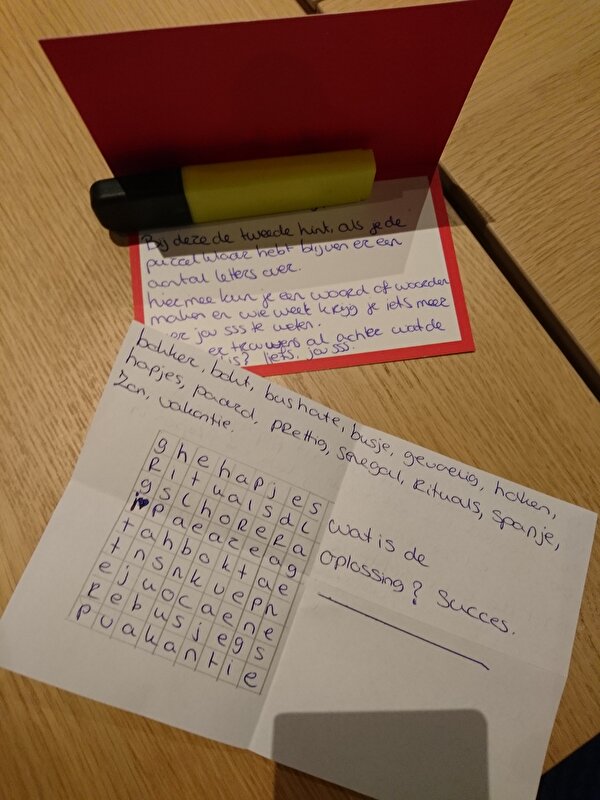 Bij deze de tweede hint, als je de
puzzel klaar hebt blijven er een
aantal letters over.
hiermee kun je een woord of woorden
maken en wie weet krijg je iets meer
over jou sss te weten.
er trouwens al achter wat de
is? Iets, jou sss.
bakker, bokt, bushalte, busje, gevoelig, haken,
hapjes, paard, prettig, Senegal, Rituals, spanje,
Zon, vakantie.
g h e h a p j e s
R i t u a l s d l
g s l h o R e R a
i♥ p a e a z e a g
t a h b o k t a e
t n s n k v e p n
e j u o c a e n e
R e b u s j e g s
p v a k a n t i e
wat is de
oplossing? Succes.